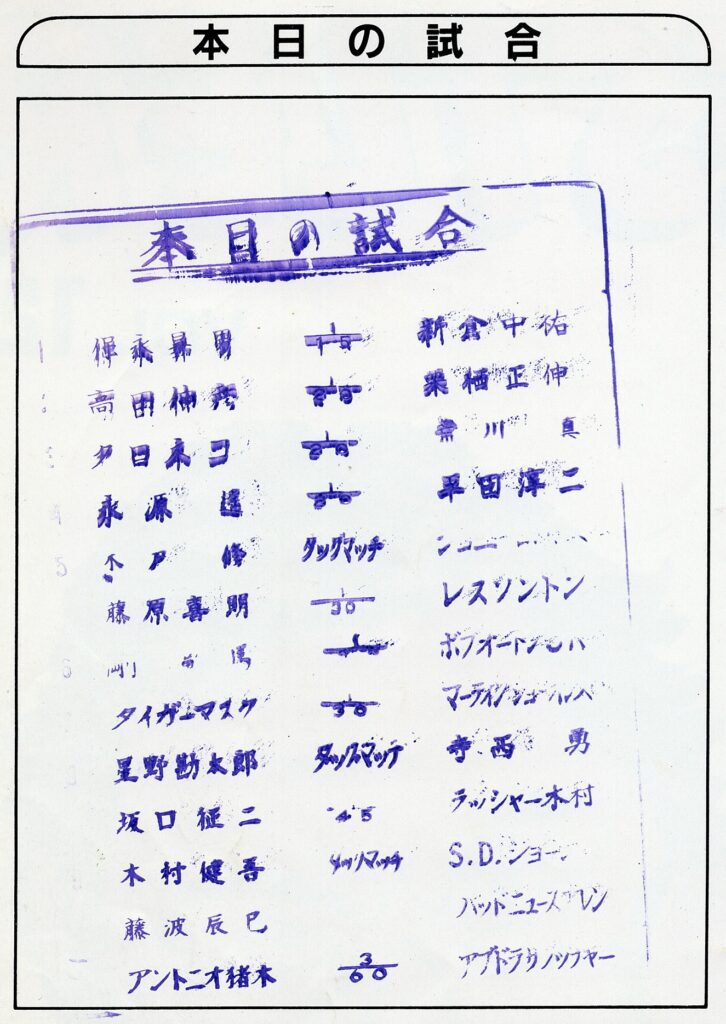 本日の試合
本日の試合
保永昇男 1/15 新倉史祐
高田伸彦 1/20 栗栖正伸
1/20 荒川真
永源遥 1/20 平田淳二
木戸修 タッグマッチ
藤原喜明 1/30 レスソントン
剛
タイガーマスク 1/30
星野勘太郎 タッグマッチ 寺西勇
坂口征二 45 ラッシャー木村
木村健吾 タッグマッチ S.D.ジョー
藤波辰巳 バッドニュースアレン
アントニオ猪木 3/60 アブドラザブッチャー